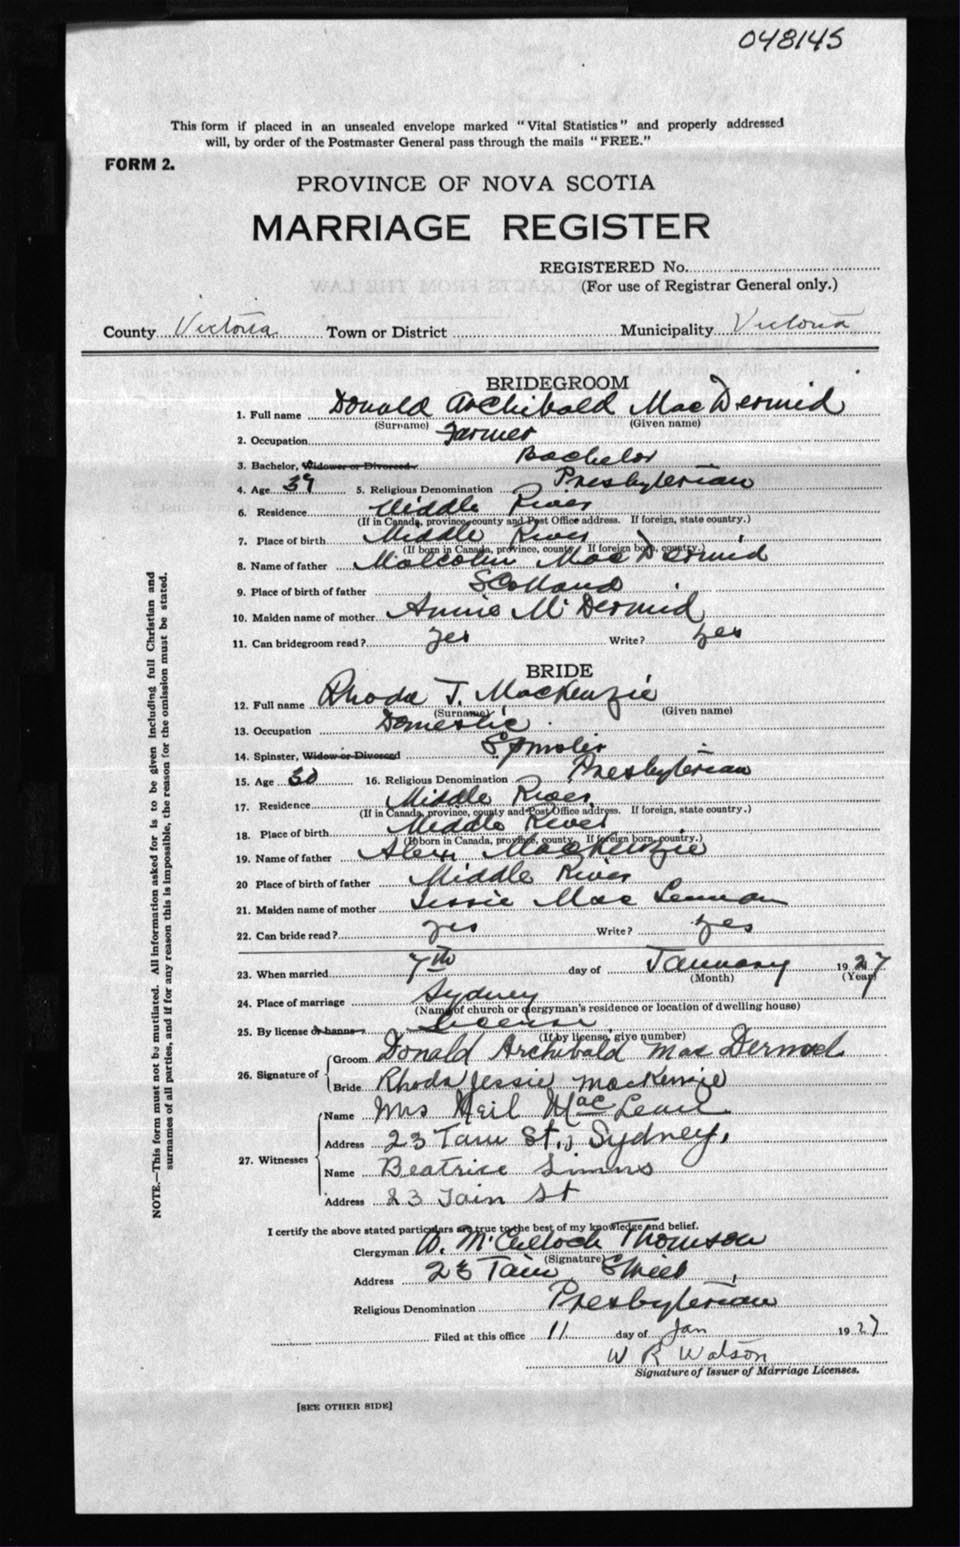 048145
This form if placed in an unsealed envelope marked "Vital Statistics" and properly addressed
will, by order of the Postmaster General pass through the mails "FREE."
FORM 2.
PROVINCE OF NOVA SCOTIA
MARRIAGE REGISTER
REGISTERED No.
(For use of Registrar General only.)
County Victoria Town or District Municipality Victoria
BRIDEGROOM
1. Full name Donald Archibald MacDermid
(Surname) (Given name)
2. Occupation Farmer
3. Bachelor, Widower or Divorced Bachelor
4. Age 5. Religious Denomination Presbyterian
6. Residence Middle River
(If in Canada, province, county and Post Office address. If foreign, state country.)
7. Place of birth Middle River
(If born in Canada, province, county. If foreign born, country.)
8. Name of father Malcolm MacDermid
9. Place of birth of father Scotland
10. Maiden name of mother Annie McDermid
11. Can bridegroom read? yes Write? yes
BRIDE
12. Full name Rhoda J. MacKenzie
(Surname) (Given name)
13. Occupation Domestic
14. Spinster, Widow or Divorced
15. Age 30 16. Religious Denomination Presbyterian
17. Residence Middle River
(If in Canada, province, county and Post Office address. If foreign, state country.)
18. Place of birth Middle River
(If born in Canada, province, county. If foreign born, country.)
19. Name of father Alex MacKenzie
20 Place of birth of father Middle River
21. Maiden name of mother Jessie MacLennan
22. Can bride read? yes Write? yes
23. When married 7th day of January 1927
(Month) (Year)
24. Place of marriage Sydney
(Name of church or clergyman's residence or location of dwelling house)
25. By license or banns License
(If by license, give number)
26. Signature of
Groom Donald Archibald MacDermid
Bride Rhoda Jessie MacKenzie
27. Witnesses
Name Mrs Neil MacLean
Address 23 St., Sydney,
Name Beatrice Simms
Address 23 St
I certify the above stated particulars are true to the best of my knowledge and belief.
Clergyman W. McCulloch Thomson
(Signature)
Address 23 Street
Religious Denomination Presbyterian
Filed at this office 11 day of Jan 1927
W R Watson
Signature of Issuer of Marriage Licenses.
[SEE OTHER SIDE]
NOTE.—This form must not be mutilated. All information asked for is to be given including full Christian and
surnames of all parties, and if for any reason this is impossible, the reason for the omission must be stated.